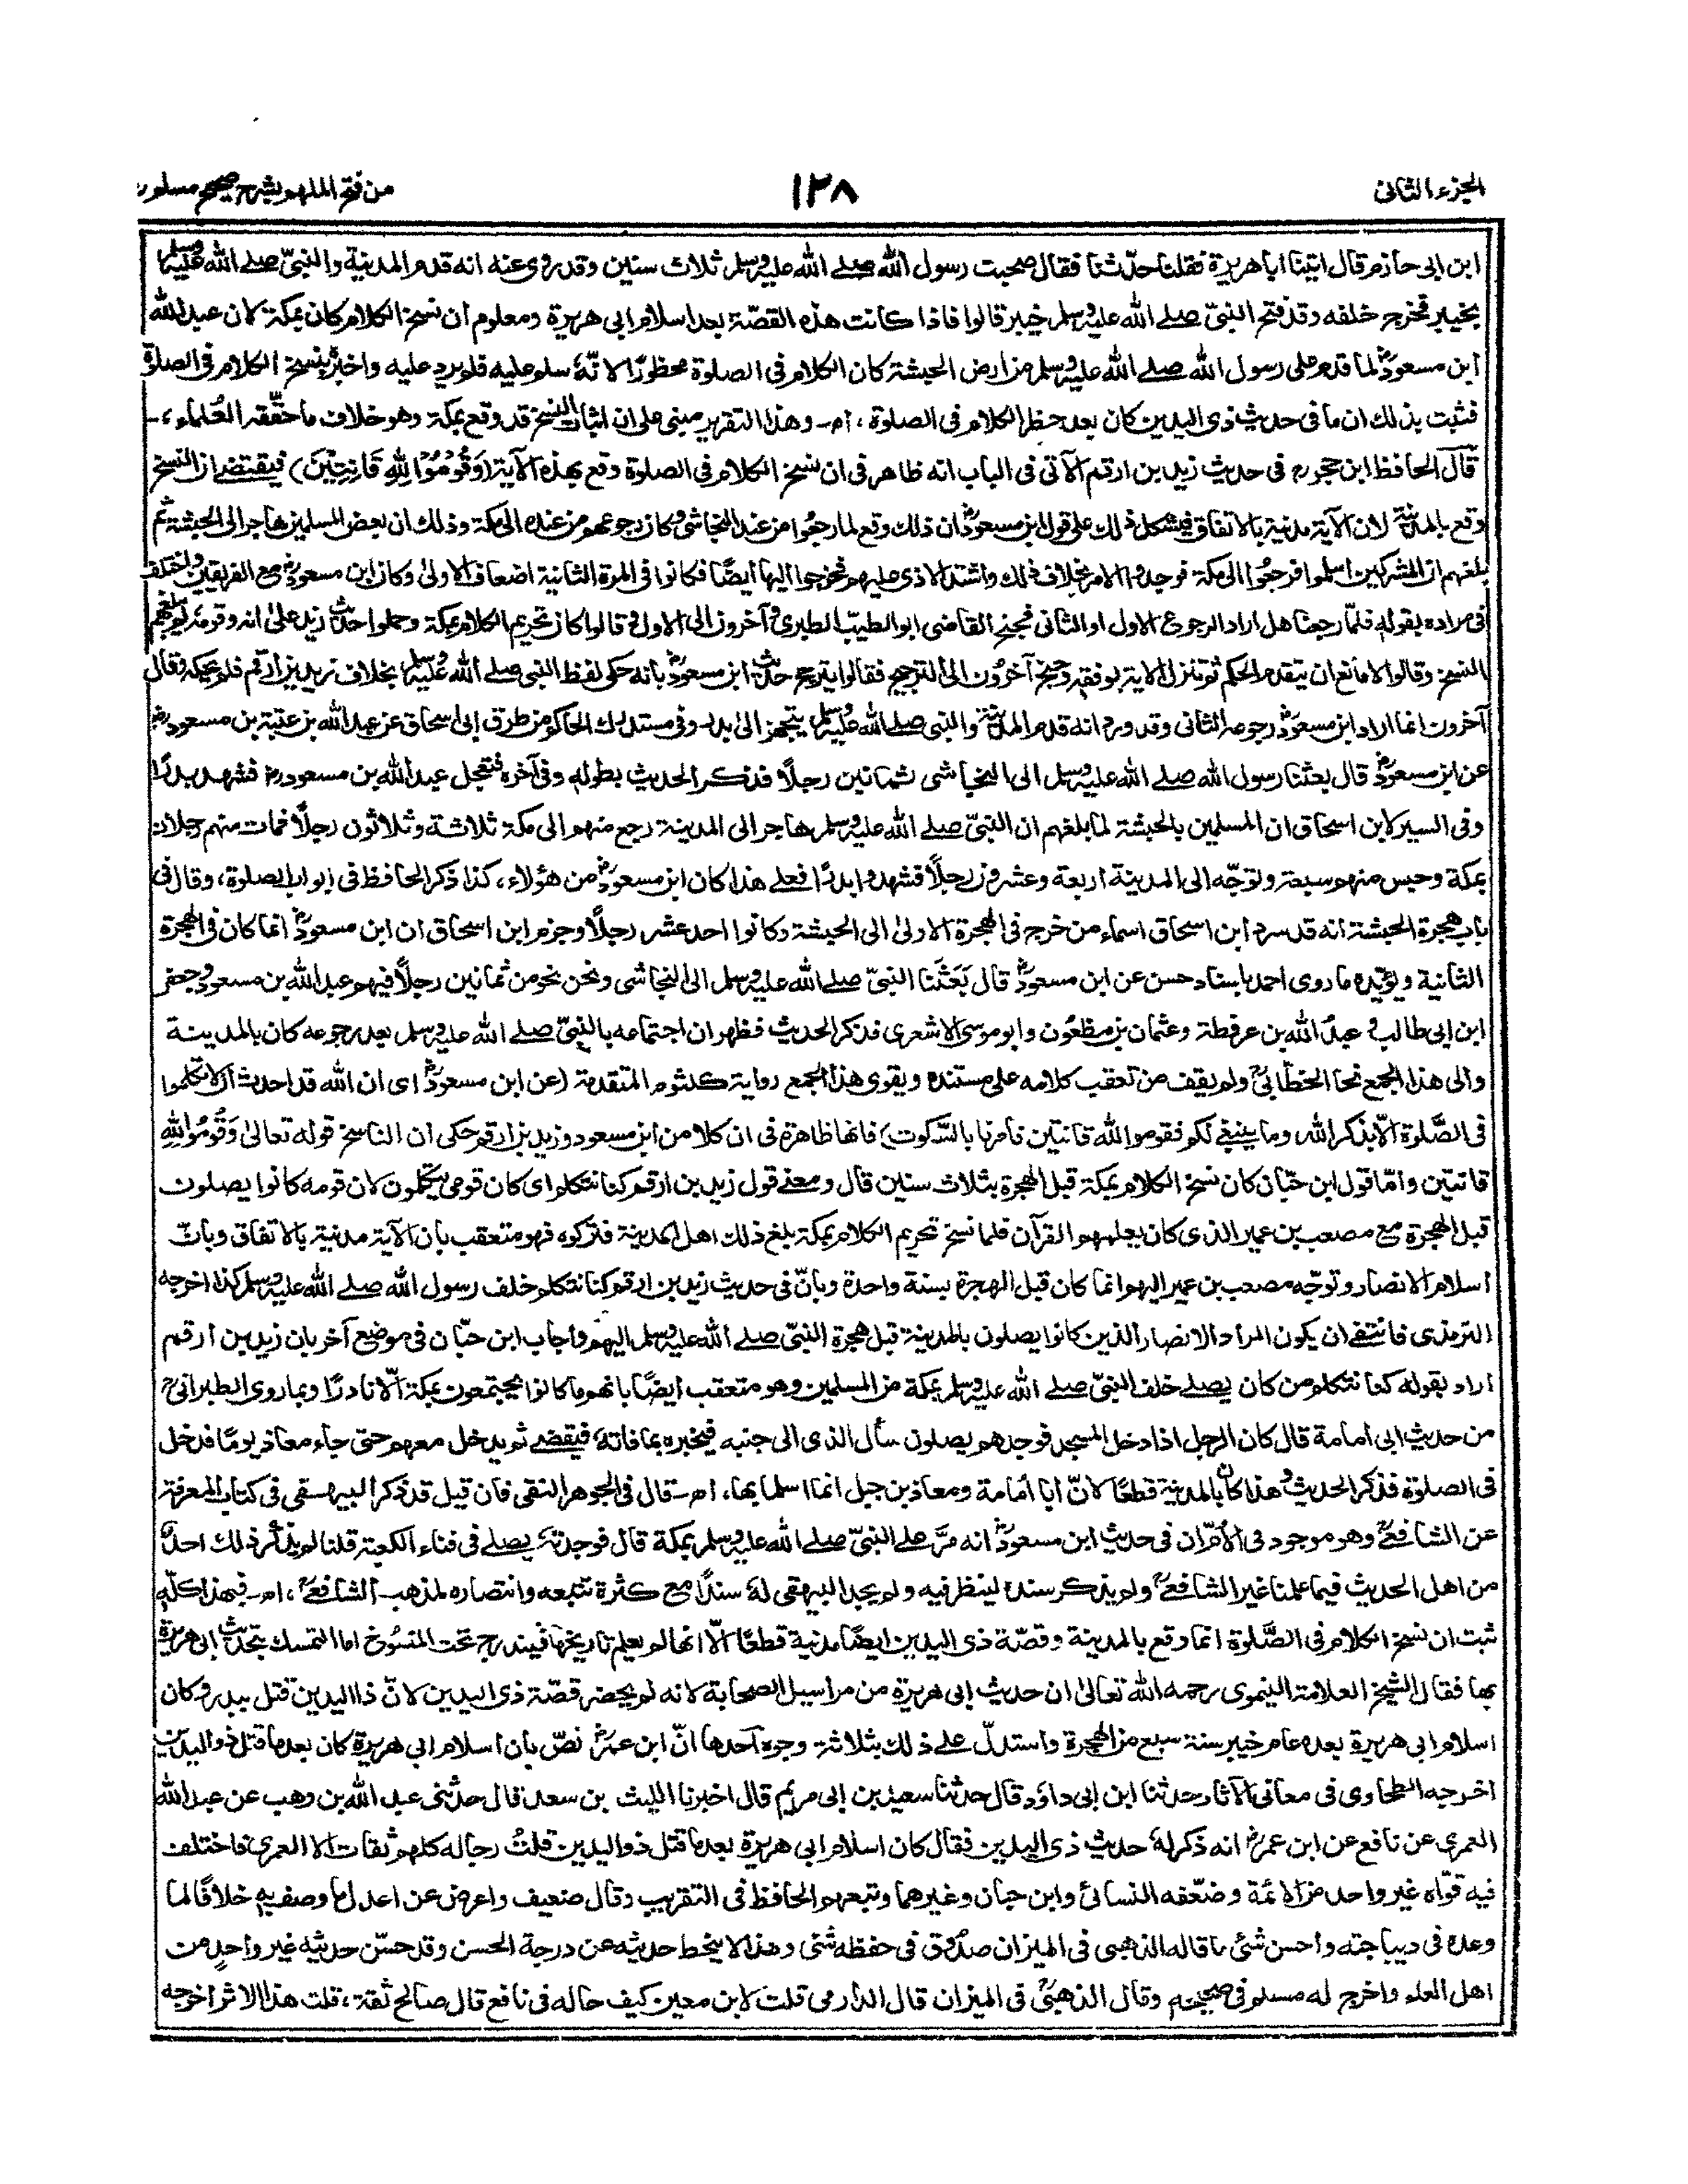 الجزء الثاني
١٢٨
من فتح الملهم بشرح صحيح مسلم
ابن ابى حازم قال اتينا ابا هريرة فقلنا حدّثنا فقال صحبت رسول الله صلے الله عليه وسلم ثلاث سنين وقد روى عنه انه قدم المدينة والنبىّ صلے الله عليه وسلم
بخيبر فخرج خلفه وقد فتح النبىّ صلے الله عليه وسلم خيبر قالوا فاذا كانت هذه القصّة بعد اسلام ابى هريرة ومعلوم ان نسخ الكلام كان بمكة لان عبد الله
ابن مسعودؓ لما قدم على رسول الله صلے الله عليه وسلم من ارض الحبشة كان الكلام فى الصلوة محظورًا لانّهٗ سلم عليه فلم يرد عليه واخبره بنسخ الكلام فى الصلوة
فثبت بذلك ان ما فى حديث ذى اليدين كان بعد حظر الكلام فى الصلوة، اھ۔ وهذا التقرير مبنى على ان اثبات النسخ قد وقع بمكة وهو خلاف ما حقّقه العُلماء،۔
قال الحافظ ابن حجرؒ فى حديث زيد بن ارقم الآتى فى الباب انه ظاهر فى ان نسخ الكلام فى الصلوة وقع بهذه الآية (وَقُوْمُوْا لِلّٰهِ قَانِتِيْنَ) فيقتضے ان النسخ
وقع بالمدينة لان الآية مدنية بالاتفاق فيشكل ذلك على قول ابن مسعودؓ ان ذلك وقع لما رجعُوا من عند النجاشى وكان رجوعهم من عنده الى مكة وذلك ان بعض المسلمين هاجر الى الحبشة ثم
بلغهم ان المشركين اسلموا فرجعُوا الى مكة فوجدوا الامر بخلاف ذلك واشتد الاذى عليهم فخرجوا اليها ايضًا فكانوا فى المرة الثانية اضعاف الاولىٰ وكان ابن مسعودؓ مع الفريقين واختلف
فى مراده بقوله فلمّا رجعنا هل اراد الرجوع الاول او الثانى فجنح القاضى ابو الطيب الطبرى وآخرون الى الاول وقالوا كان تحريم الكلام بمكة وحملوا حديث زيد علىٰ انه وقومه لم يبلغهم
النسخ وقالوا لا مانع ان يتقدم الحكم ثم تنزل الآية بوفقه وجنح آخرون الى الترجيح فقالوا يترجح حديث ابن مسعودؓ بانه حكى لفظ النبى صلے الله عليه وسلم بخلاف زيد بن ارقم فلم يحكه وقال
آخرون انما اراد ابن مسعودؓ رجوعه الثانى وقد ورد انه قدم المدينة والنبى صلے الله عليه وسلم يتجهز الى بدر وفى مستدرك الحاكم من طريق ابى اسحاق عن عبد الله بن عتبة بن مسعودؓ
عن ابن مسعودؓ قال بعثنا رسول الله صلے الله عليه وسلم الى النجاشى ثمانين رجلًا فذكر الحديث بطوله وفى آخره فتعجل عبد الله بن مسعودؓ فشهد بدرًا
وفى السير لابن اسحاق ان المسلمين بالحبشة لما بلغهم ان النبىّ صلے الله عليه وسلم هاجر الى المدينة رجع منهم الى مكة ثلاثة وثلاثون رجلًا فمات منهم رجلان
بمكة وحبس منهم سبعة وتوجّه الى المدينة اربعة وعشرون رجلًا فشهدوا بدرًا فعلے هذا كان ابن مسعودؓ من هؤلاء، كذا ذكر الحافظ فى ابواب الصلوة، وقال فى
باب هجرة الحبشة انه قد سرد ابن اسحاق اسماء من خرج فى الهجرة الاولىٰ الى الحبشة وكانوا احد عشر رجلًا وجزم ابن اسحاق ان ابن مسعودؓ انما كان فى الهجرة
الثانية ويؤيده ما روى احمد باسناد حسن عن ابن مسعودؓ قال بَعَثَنَا النبىّ صلے الله عليه وسلم الى النجاشى ونحن نحو من ثمانين رجلًا فيهم عبد الله بن مسعود وجعفر
ابن ابى طالب وعبد الله بن عرفطة وعثمان بن مظعُون وابو موسى الاشعرى فذكر الحديث فظهر ان اجتماعه بالنبىّ صلے الله عليه وسلم بعد رجوعه كان بالمدينة
والى هذا الجمع نحا الخطّابىؒ ولم يقف من تعقب كلامه على مستنده ويقوى هذا الجمع رواية كلثوم المتقدمة (عن ابن مسعودؓ اى ان الله قد احدث ان لا تكلموا
فى الصَّلوة الّا بذكر الله، وما ينبغے لكم فقوموا لله قانتين فأمرنا بالسّكوت) فانها ظاهرة فى ان كلا من ابن مسعود وزيد بن ارقم حكى ان الناسخ قوله تعالىٰ وَقُوْمُوْا لِلّٰهِ
قانتين وامّا قول ابن حبّان كان نسخ الكلام بمكة قبل الهجرة بثلاث سنين قال ومعنے قول زيد بن ارقم كنا نتكلم اى كان قومى يتكلمون لان قومه كانوا يصلون
قبل الهجرة مع مصعب بن عمير الذى كان يعلمهم القرآن فلما نسخ تحريم الكلام بمكة بلغ ذلك اهل المدينة فتركوه فهو متعقب بان الآية مدنية بالاتفاق وبانّ
اسلام الانصار وتوجّه مصعب بن عمير اليهم انما كان قبل الهجرة بسنة واحدة وبانّ فى حديث زيد بن ارقم كنا نتكلم خلف رسول الله صلے الله عليه وسلم كذا اخرجه
الترمذى فانتفے ان يكون المراد الانصار الذين كانوا يصلون بالمدينة قبل هجرة النبىّ صلے الله عليه وسلم اليهم واجاب ابن حبّان فى موضع آخر بان زيد بن ارقم
اراد بقوله كنا نتكلم من كان يصلے خلف النبىّ صلے الله عليه وسلم بمكة من المسلمين وهو متعقب ايضًا بانهم ما كانوا يجتمعون بمكة الّا نادرًا وبما روى الطبرانىؒ
من حديث ابى امامة قال كان الرجل اذا دخل المسجد فوجدهم يصلون سأل الذى الى جنبه فيخبره بما فاتهٗ فيقضے ثم يدخل معهم حتى جاء معاذ يومًا فدخل
فى الصلوة فذكر الحديث وهذا كان بالمدينة قطعًا لانّ ابا أمامة ومعاذ بن جبل انما اسلما بها، اھ۔ قال فى الجوهر النقى فان قيل قد ذكر البيهقى فى كتاب المعرفة
عن الشافعىؒ وهو موجود فى الأمّ ان فى حديث ابن مسعودؓ انه مرَّ علے النبىّ صلے الله عليه وسلم بمكة قال فوجدتهٗ يصلے فى فناء الكعبة قلنا لم يذكر ذلك احدٌ
من اهل الحديث فيما علمنا غير الشافعىؒ ولم يذكر سنده لينظر فيه ولم يجد البيهقى لهٗ سندًا مع كثرة تتبعه وانتصاره لمذهب الشافعىؒ، اھ۔ فبهذا كلّهٖ
ثبت ان نسخ الكلام فى الصَّلوة انما وقع بالمدينة وقصّة ذى اليدين ايضًا مدنية قطعًا الّا انها لم يعلم تاريخها فيندرج تحت المنسُوخ اما التمسك بتحديث ابى هريرة
بها فقال الشيخ العلامة النيموى رحمه الله تعالىٰ ان حديث ابى هريرة من مراسيل الصحابة لانه لم يحضر قصّة ذى اليدين لانّ ذا اليدين قتل ببدر وكان
اسلام ابى هريرة بعده عام خيبر سنة سبع من الهجرة واستدلّ علے ذلك بثلاثة وجوه آحدها انّ ابن عمرؓ نصّ بان اسلام ابى هريرة كان بعد ما قتل ذو اليدين
اخرجه الطحاوى فى معانى الآثار حدثنا ابن ابى داؤد قال حدثنا سعيد بن ابى مريم قال اخبرنا الليث بن سعد قال حدثنى عبد الله بن وهب عن عبد الله
العمرى عن نافع عن ابن عمرؓ انه ذكر لهٗ حديث ذى اليدين فقال كان اسلام ابى هريرة بعد ما قتل ذو اليدين قلتُ رجاله كلهم ثقات الا العمرى فاختلف
فيه قوّاه غير واحد من الائمة وضعّفه النسائى وابن حبان وغيرهما وتبعهم الحافظ فى التقريب وقال ضعيف واعرض عن اعدل ما وصف به خلافًا لما
وعده فى ديباجته واحسن شئ ما قاله الذهبى فى الميزان صدُوق فى حفظه شئ وهذا لا ينحط حديثه عن درجة الحسن وقد حسّن حديثه غير واحدٍ من
اهل العلم واخرج له مسلم فى صحيحه وقال الذهبىؒ فى الميزان قال الدارمى قلت لابن معين كيف حاله فى نافع قال صالح ثقة، قلت هذا الاثر اخرجه